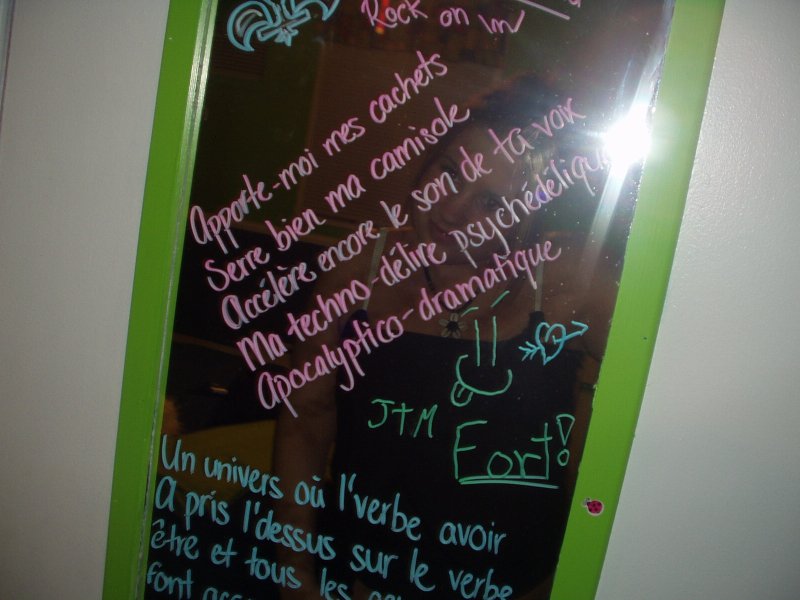 Rock on
Apporte-moi mes cachets
Serre bien ma camisole
Accélère encore le son de ta voix
Ma techno-délire psychédélique
Apocalyptico-dramatique
J+M
Fort!
Un univers où l'verbe avoir
A pris l'dessus sur le verbe
être et tous les
font